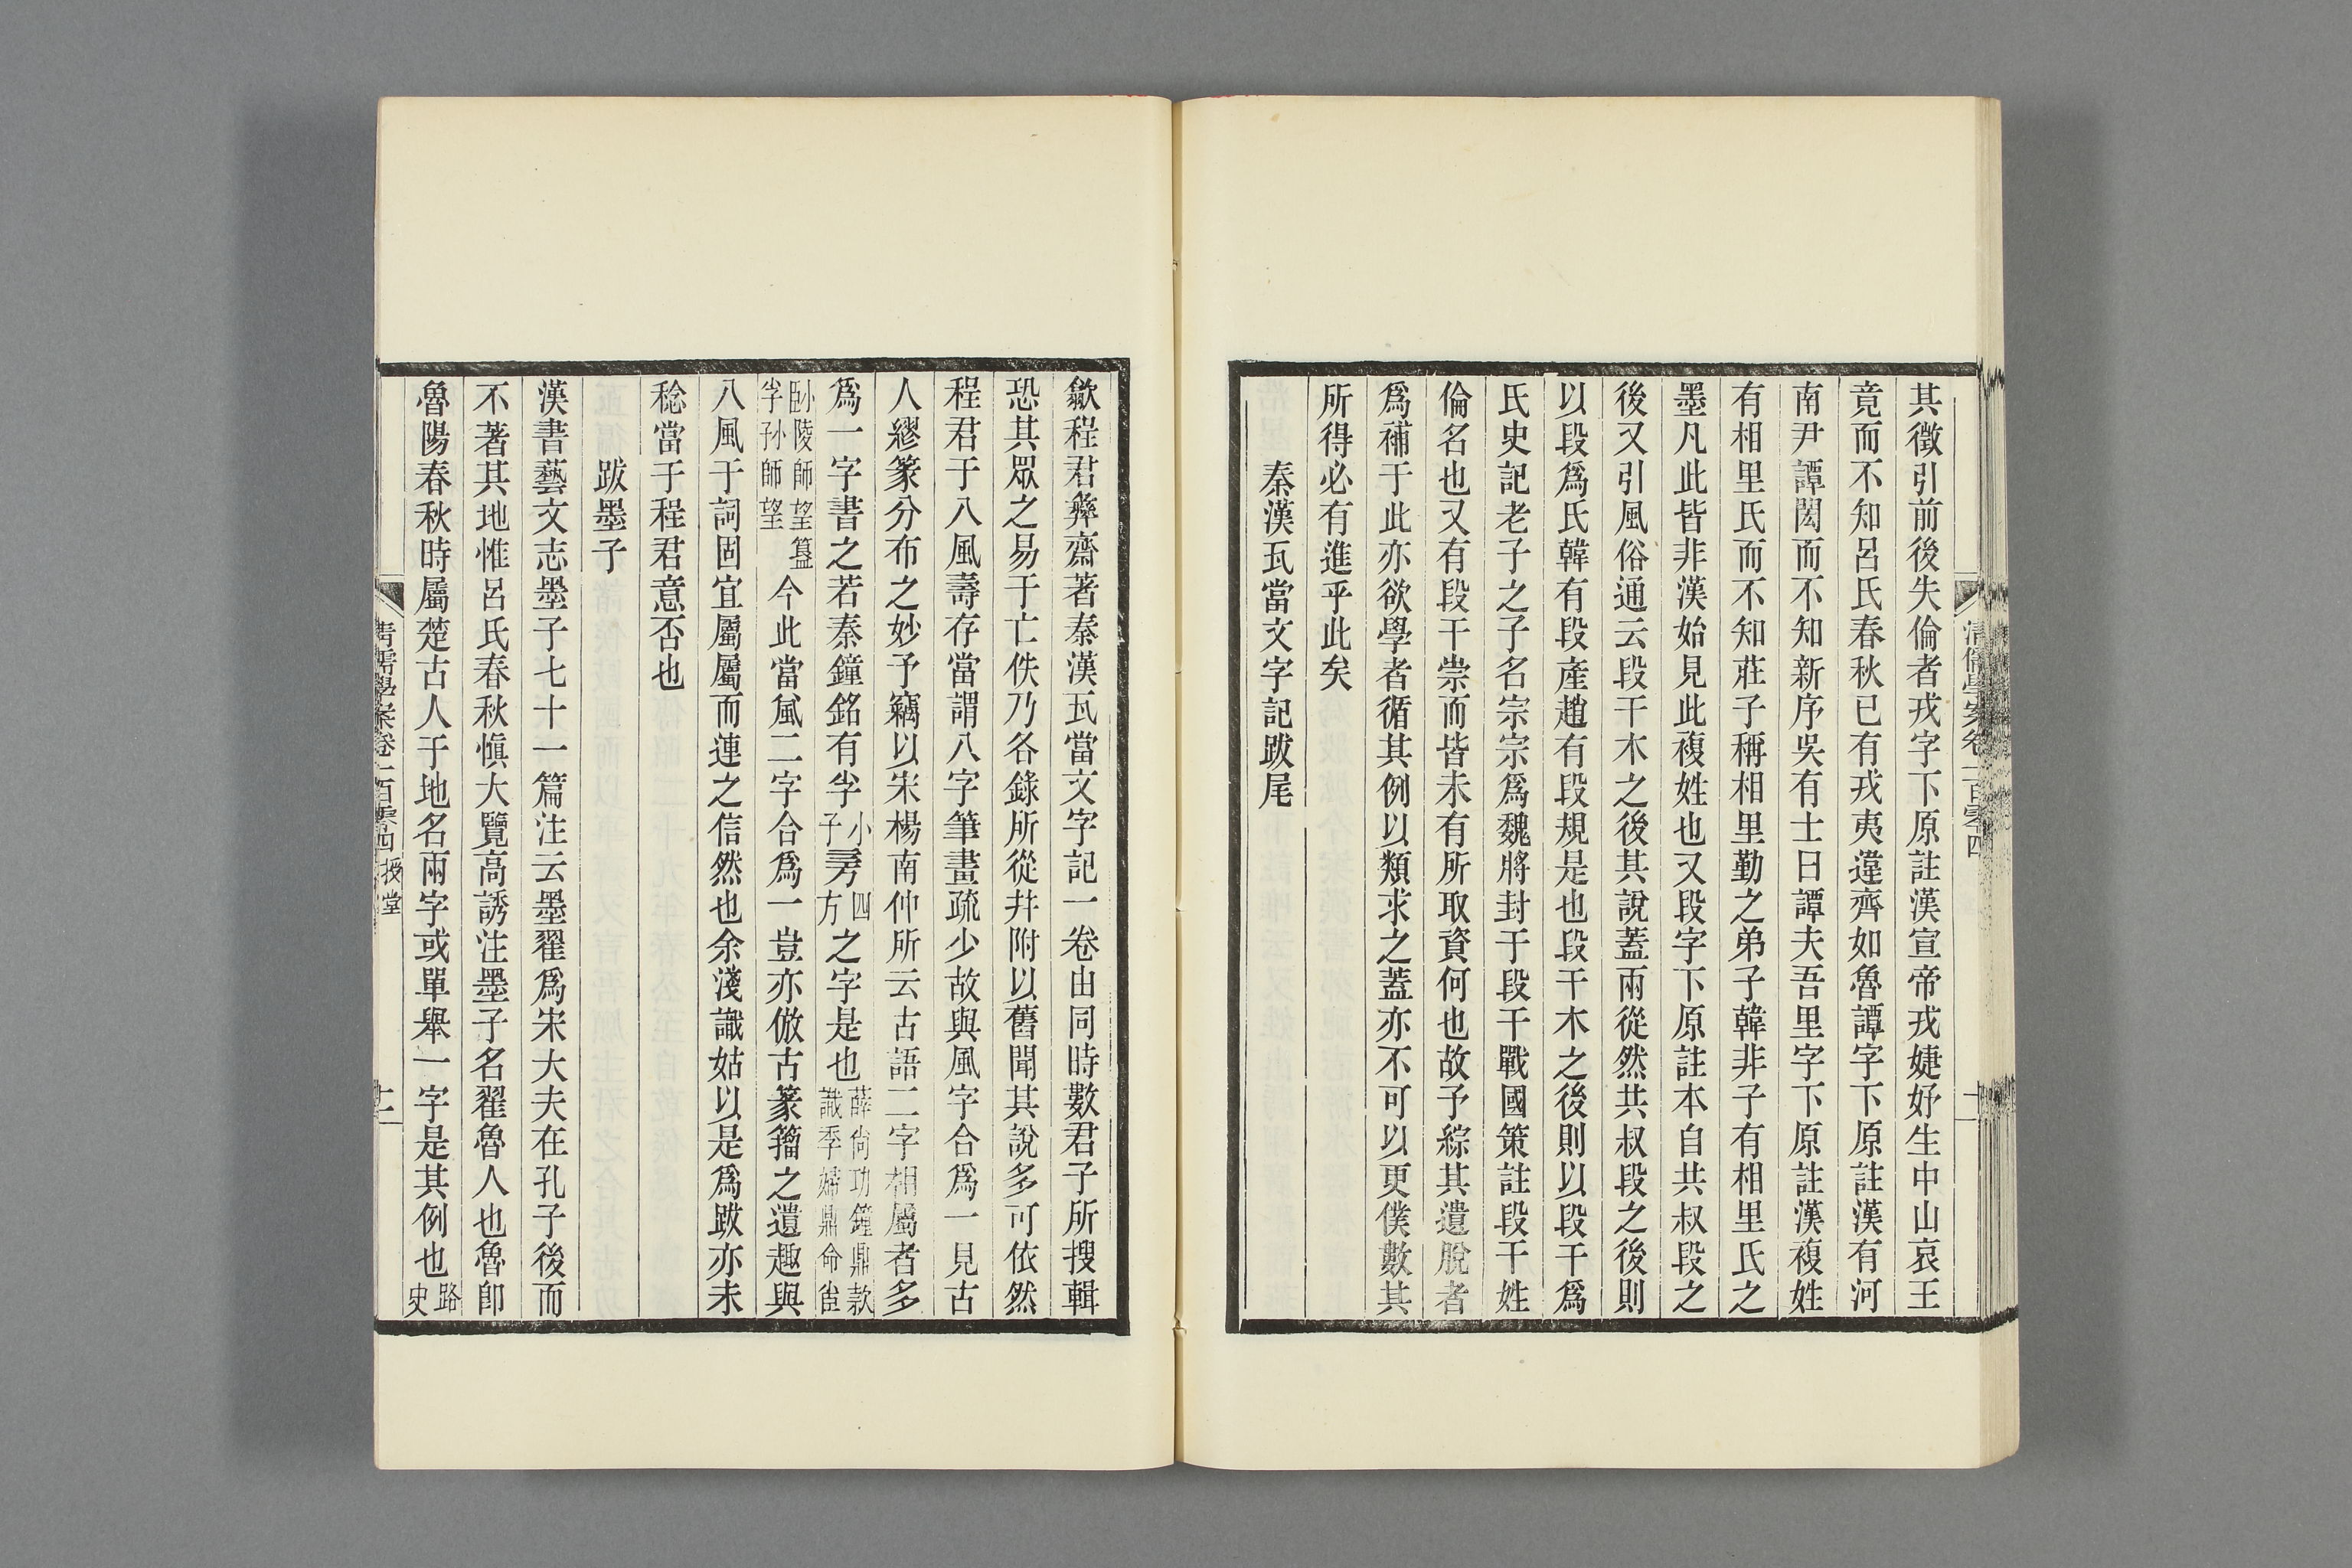 其徵引前後失倫者戎字下原註漢宣帝戎婕妤生中山哀王
竟而不知呂氏春秋已有戎夷違齊如魯譚字下原註漢有河
南尹譚閎而不知新序吳有士曰譚夫吾里字下原註漢複姓
有相里氏而不知莊子稱相里勤之弟子韓非子有相里氏之
墨凡此皆非漢始見此複姓也又段字下原註本自共叔段之
後又引風俗通云段干木之後其說蓋兩從然共叔段之後則
以段爲氏韓有段產趙有段規是也段干木之後則以段干爲
氏史記老子之子名宗宗爲魏將封于段干戰國策註段干姓
倫名也又有段干崇而皆未有所取資何也故予綜其遺脫者
爲補于此亦欲學者循其例以類求之蓋亦不可以更僕數其
所得必有進乎此矣
秦漢瓦當文字記跋尾
清儒學案卷一百零四
十一
歙程君彝齋著秦漢瓦當文字記一卷由同時數君子所搜輯
恐其眾之易于亡佚乃各錄所從幷附以舊聞其說多可依然
程君于八風壽存當謂八字筆畫疏少故與風字合爲一見古
人繆篆分布之妙予竊以宋楊南仲所云古語二字相屬者多
爲一字書之若秦鐘銘有㝊小子四方之字是也薛尚功鐘鼎款識季㛸鼎命
臥陵師望簋㝊孙師望今此當風二字合爲一豈亦倣古篆籀之遺趣與
八風于詞固宜屬屬而連之信然也余淺識姑以是爲跋亦未
稔當于程君意否也
跋墨子
漢書藝文志墨子七十一篇注云墨翟爲宋大夫在孔子後而
不著其地惟呂氏春秋愼大覽高誘注墨子名翟魯人也魯卽
魯陽春秋時屬楚古人于地名兩字或單舉一字是其例也路史
清儒學案卷一百零四 授堂
十二